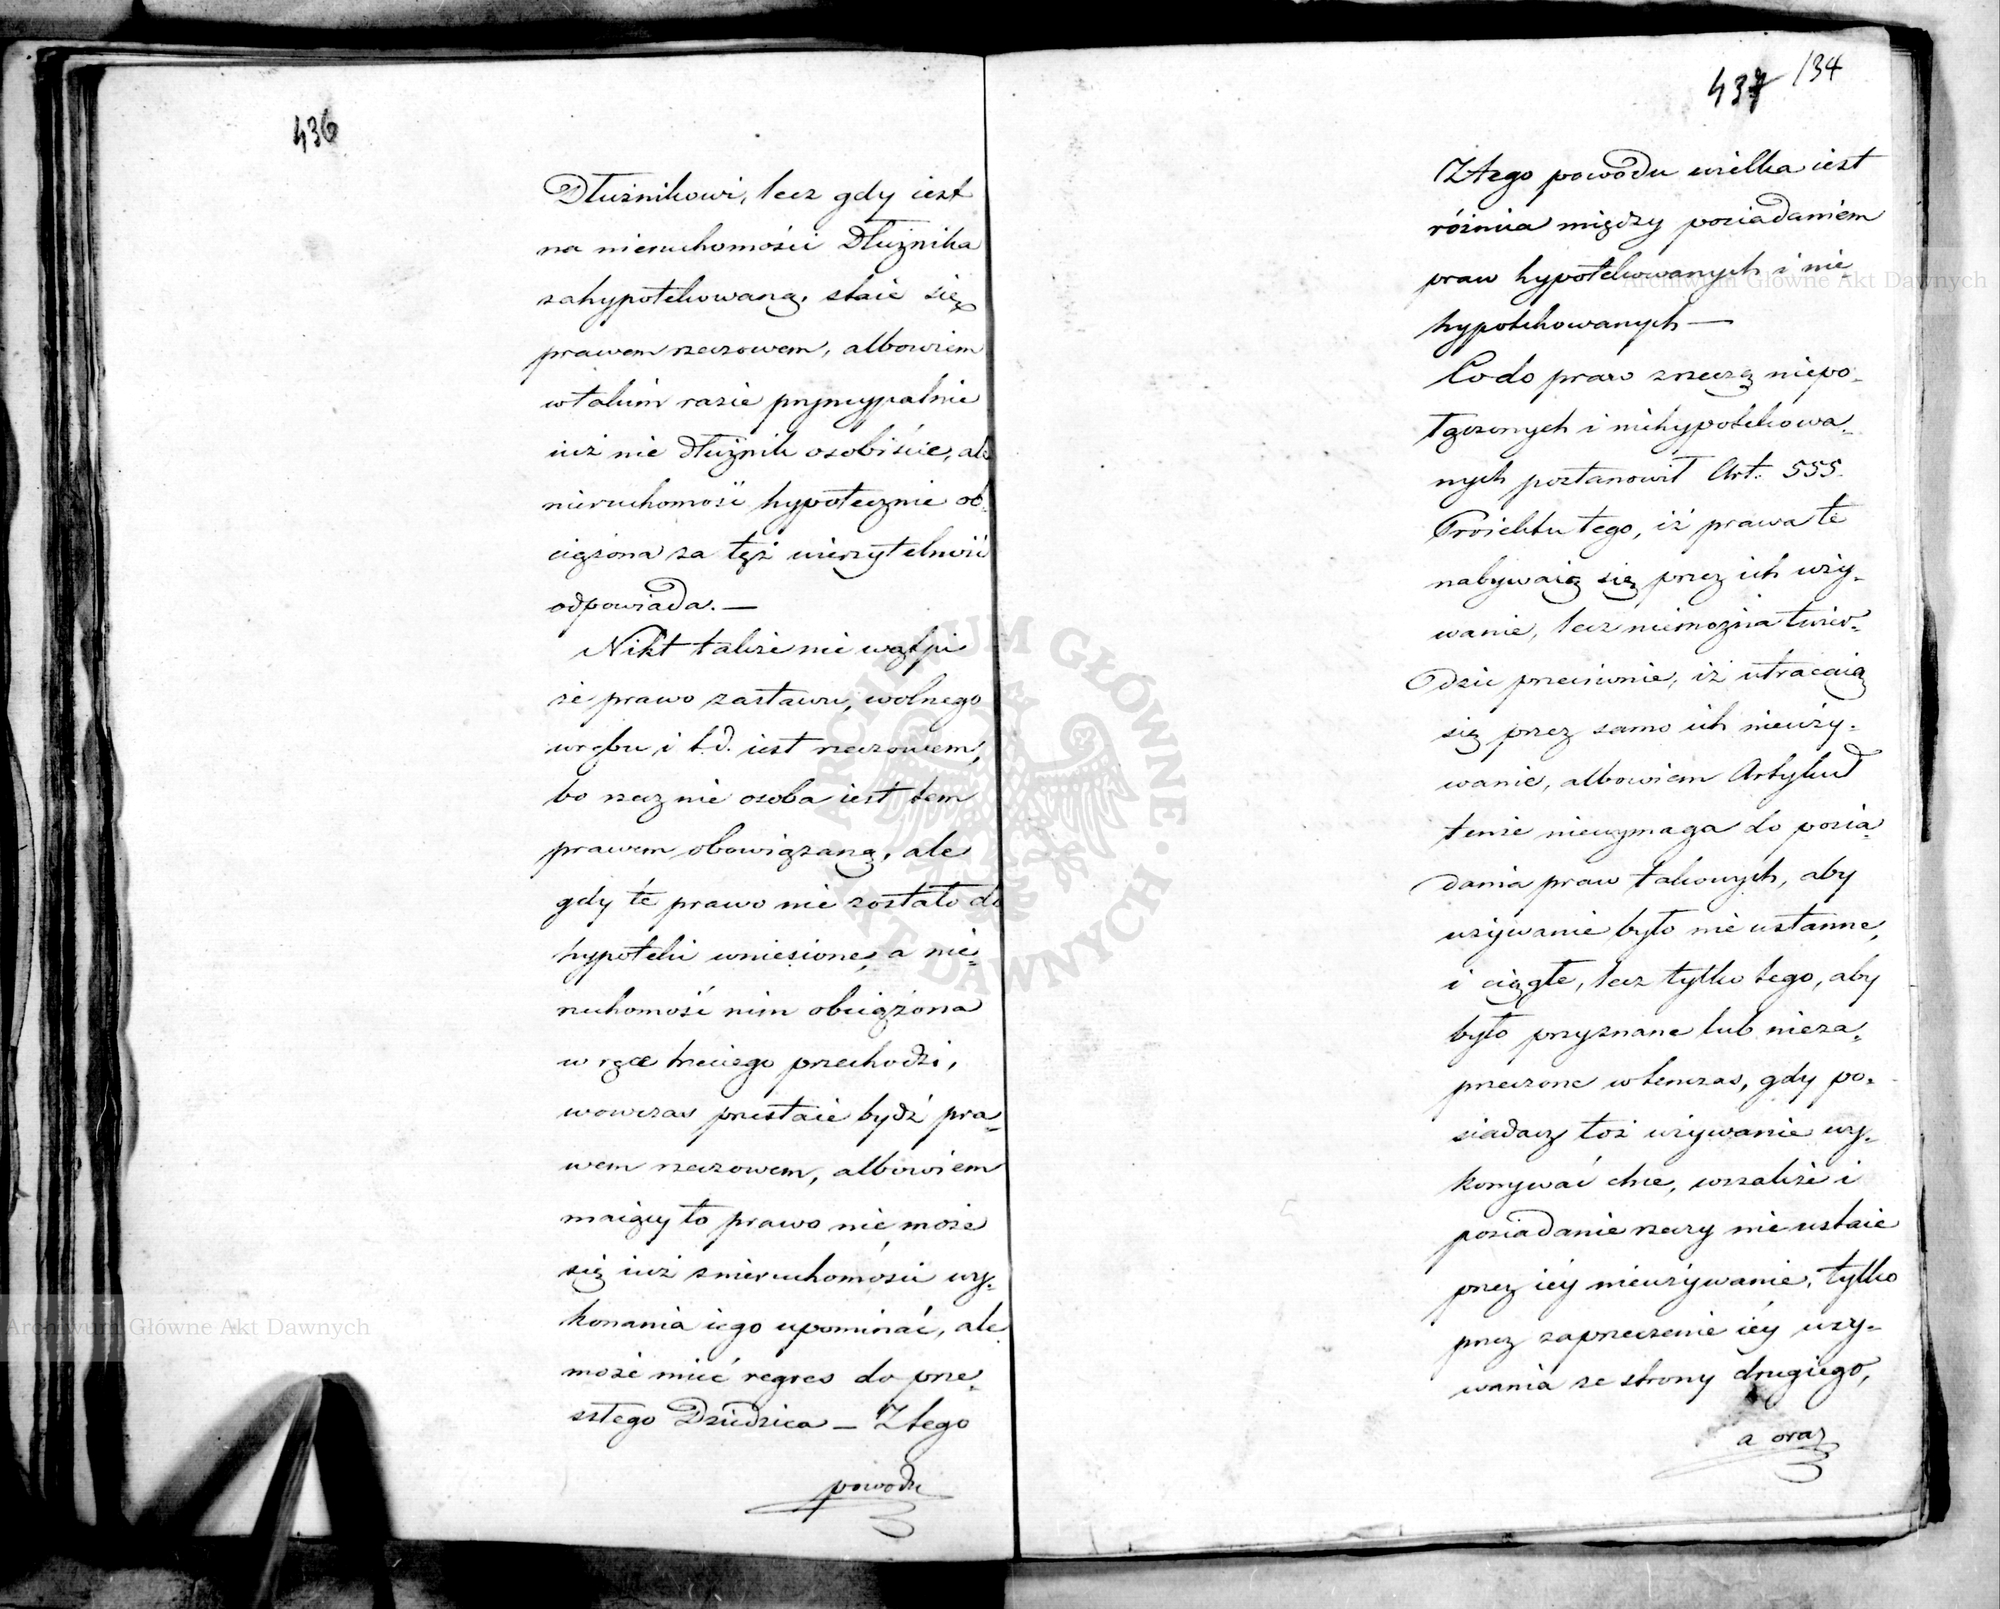 436
Dłużnikowi, lecz gdy iest
na nieruchomości Dłużnika
zahypotekowaną, staie się
prawem rzeczowem, albowiem
w takim razie pryncypalnie
iuż nie dłużnik osobiście, ale
nieruchomość hypotecznie ob-
ciążona za tęż wierzytelność
odpowiada. —
Nikt także nie wątpi
że prawo zastawu, wolnego
wrębu i t.d. iest rzeczowem,
bo rzecz nie osoba iest tem
prawem obowiązaną, ale
gdy te prawo nie zostało do
hypoteki wniesione, a nie-
ruchomość nim obciążona
w ręce trzeciego przechodzi,
wowczas przestaie bydź pra-
wem rzeczowem, albowiem
maiący to prawo nie może
się iuż z nieruchomości wy-
konania iego upominać, ale
może mieć regres do prze-
szłego Dziedzica — Z tego
powodu
437 134
Z tego powodu wielka iest
różnica między posiadaniem
praw hypotekowanych i nie
hypotekowanych —
Co do praw z rzeczą niepo-
łączonych i niehypotekowa-
nych postanowił Art. 555.
Proiektu tego, iż prawa te
nabywaią się przez ich uży-
wanie, lecz niemożna twier-
dzić przeciwnie, iż utracaią
się przez samo ich nieuży-
wanie, albowiem Artykuł
tenże niewymaga do posia-
dania praw takowych, aby
używanie było nie ustanne,
i ciągłe, lecz tylko tego, aby
było przyznane lub nieza-
przeczone wtenczas, gdy po-
siadacz toż używanie wy-
konywać chce, wszakże i
posiadanie rzeczy nie ustaie
przez iéy nieużywanie, tylko
przez zaprzeczenie iéy uży-
wania ze strony drugiego,
a oraz
Archiwum Główne Akt Dawnych
Archiwum Główne Akt Dawnych
ARCHIWUM GŁÓWNE · AKT DAWNYCH ·